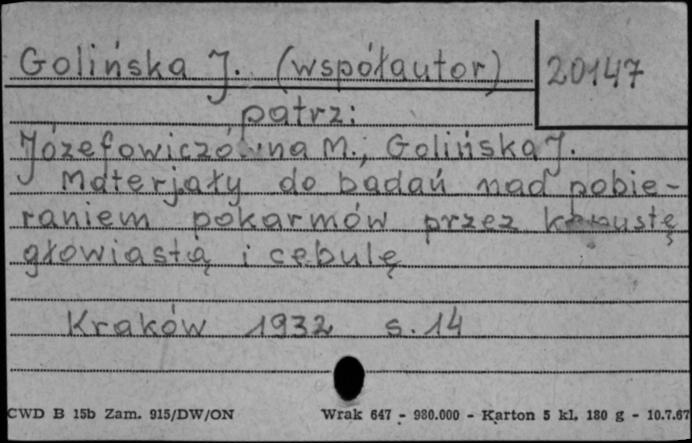 Golińska J. (współautor) 20147
patrz:
Józefowiczówna M., Golińska J.
Materjały do badań nad pobie-
raniem pokarmów przez kapustę
głowiastą i cebulę
Kraków 1932 s. 14
CWD B 15b Zam. 915/DW/ON Wrak 647 - 980.000 - Karton 5 kl. 180 g - 10.7.67